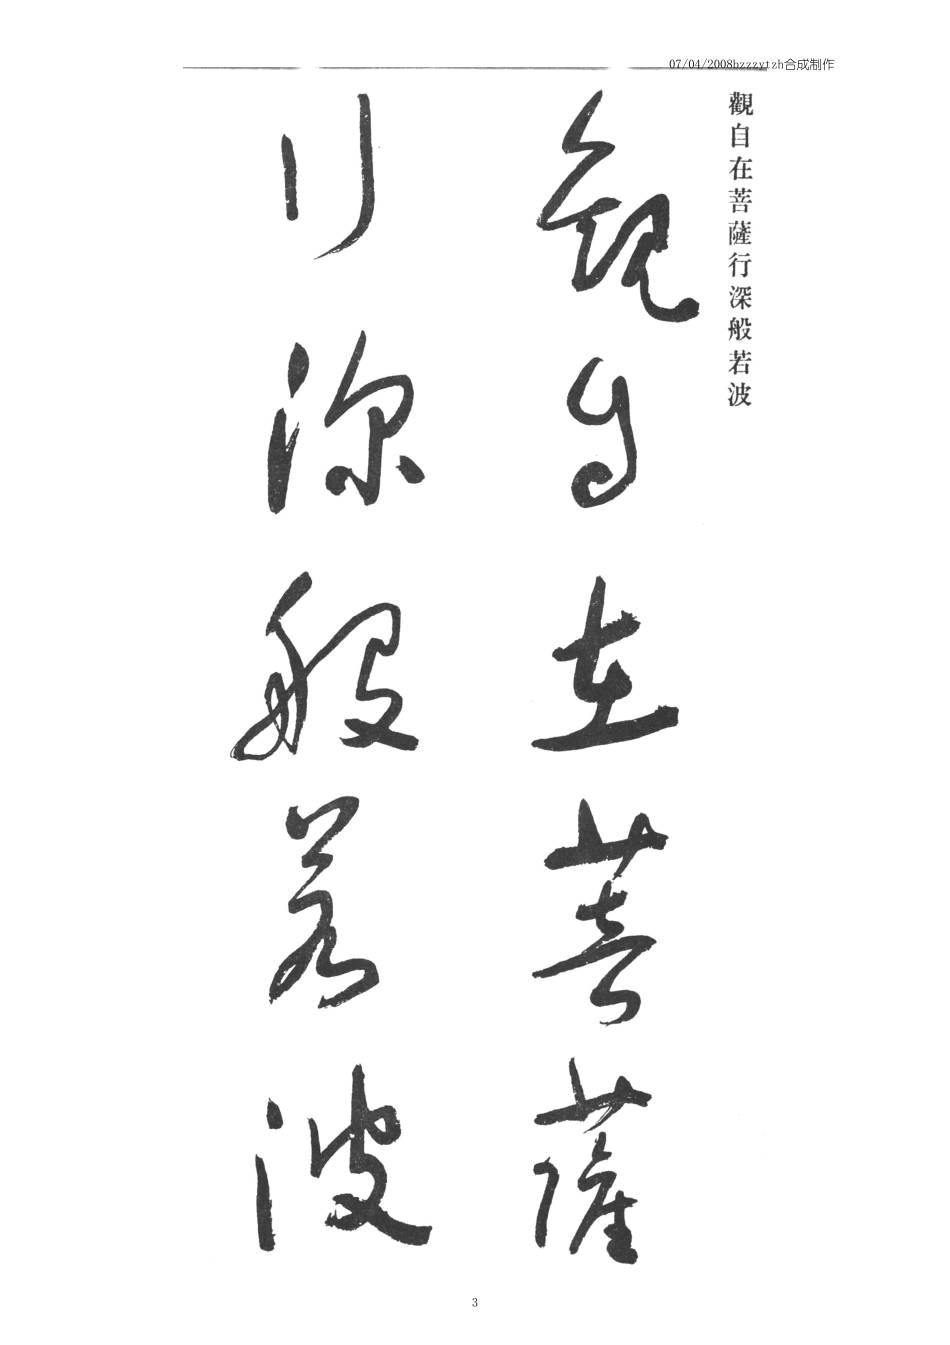 07/04/2008bzzzytzh合成制作
觀自在菩薩行深般若波
觀自在菩薩
行深般若波
3